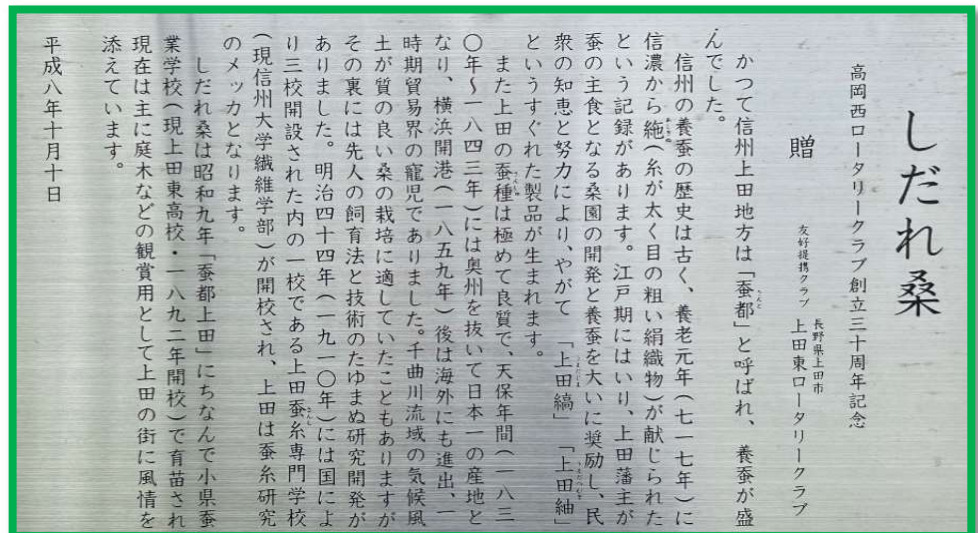 しだれ桑
高岡西ロータリークラブ創立三十周年記念
贈
友好提携クラブ
長野県上田市
上田東ロータリークラブ
かつて信州上田地方は「蚕都」と呼ばれ、養蚕が盛
んでした。
信州の養蚕の歴史は古く、養老元年(七一七年)に
信濃から絁(糸が太く目の粗い絹織物)が献じられた
という記録があります。江戸期にはいり、上田藩主が
蚕の主食となる桑園の開発と養蚕を大いに奨励し、民
衆の知恵と努力により、やがて「上田縞」「上田紬」
というすぐれた製品が生まれます。
また上田の蚕種は極めて良質で、天保年間(一八三
〇年〜一八四三年)には奥州を抜いて日本一の産地と
なり、横浜開港(一八五九年)後は海外にも進出、一
時期貿易界の寵児でありました。千曲川流域の気候風
土が質の良い桑の栽培に適していたこともありますが
その裏には先人の飼育法と技術のたゆまぬ研究開発が
ありました。明治四十四年(一九一〇年)には国によ
り三校開設された内の一校である上田蚕糸専門学校
(現信州大学繊維学部)が開校され、上田は蚕糸研究
のメッカとなります。
しだれ桑は昭和九年「蚕都上田」にちなんで小県蚕
業学校(現上田東高校・一八九二年開校)で育苗され
現在は主に庭木などの観賞用として上田の街に風情を
添えています。
平成八年十月十日